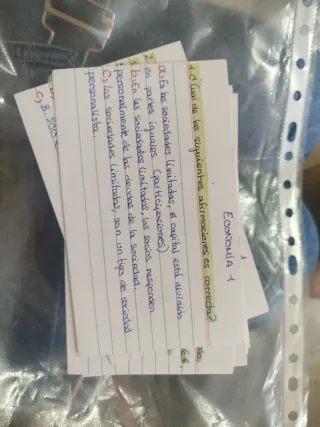 ECONOMÍA 1
1. ¿Cuál de las siguientes afirmaciones es correcta?
a, En las sociedades limitadas, el capital está dividido
en partes iguales (participaciones)
b, En las sociedades limitadas, los socios responden
personalmente de las deudas de la sociedad.
c, Las sociedades limitadas, son un tipo de sociedad
personalista.